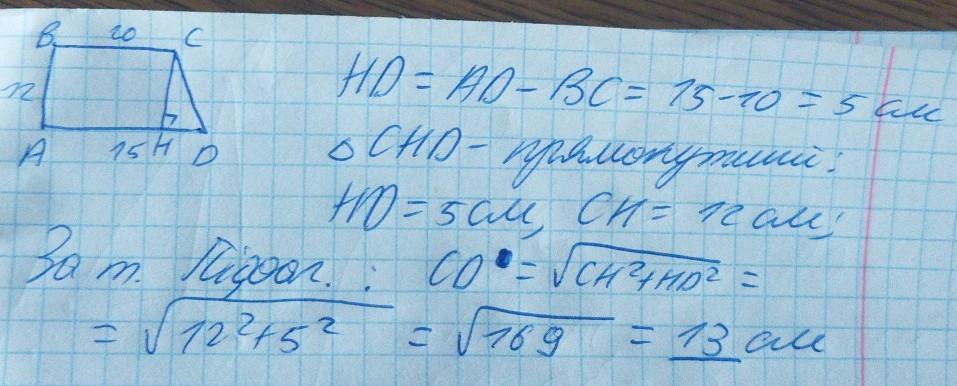 B 10 C
12
A 15 H D
HD = AD - BC = 15-10 = 5 см
△ CHD - прямокутний:
HD = 5 см, CH = 12 см;
За т. Піфаг. : CD = √CH²+HD² =
= √12²+5² = √169 = 13 см